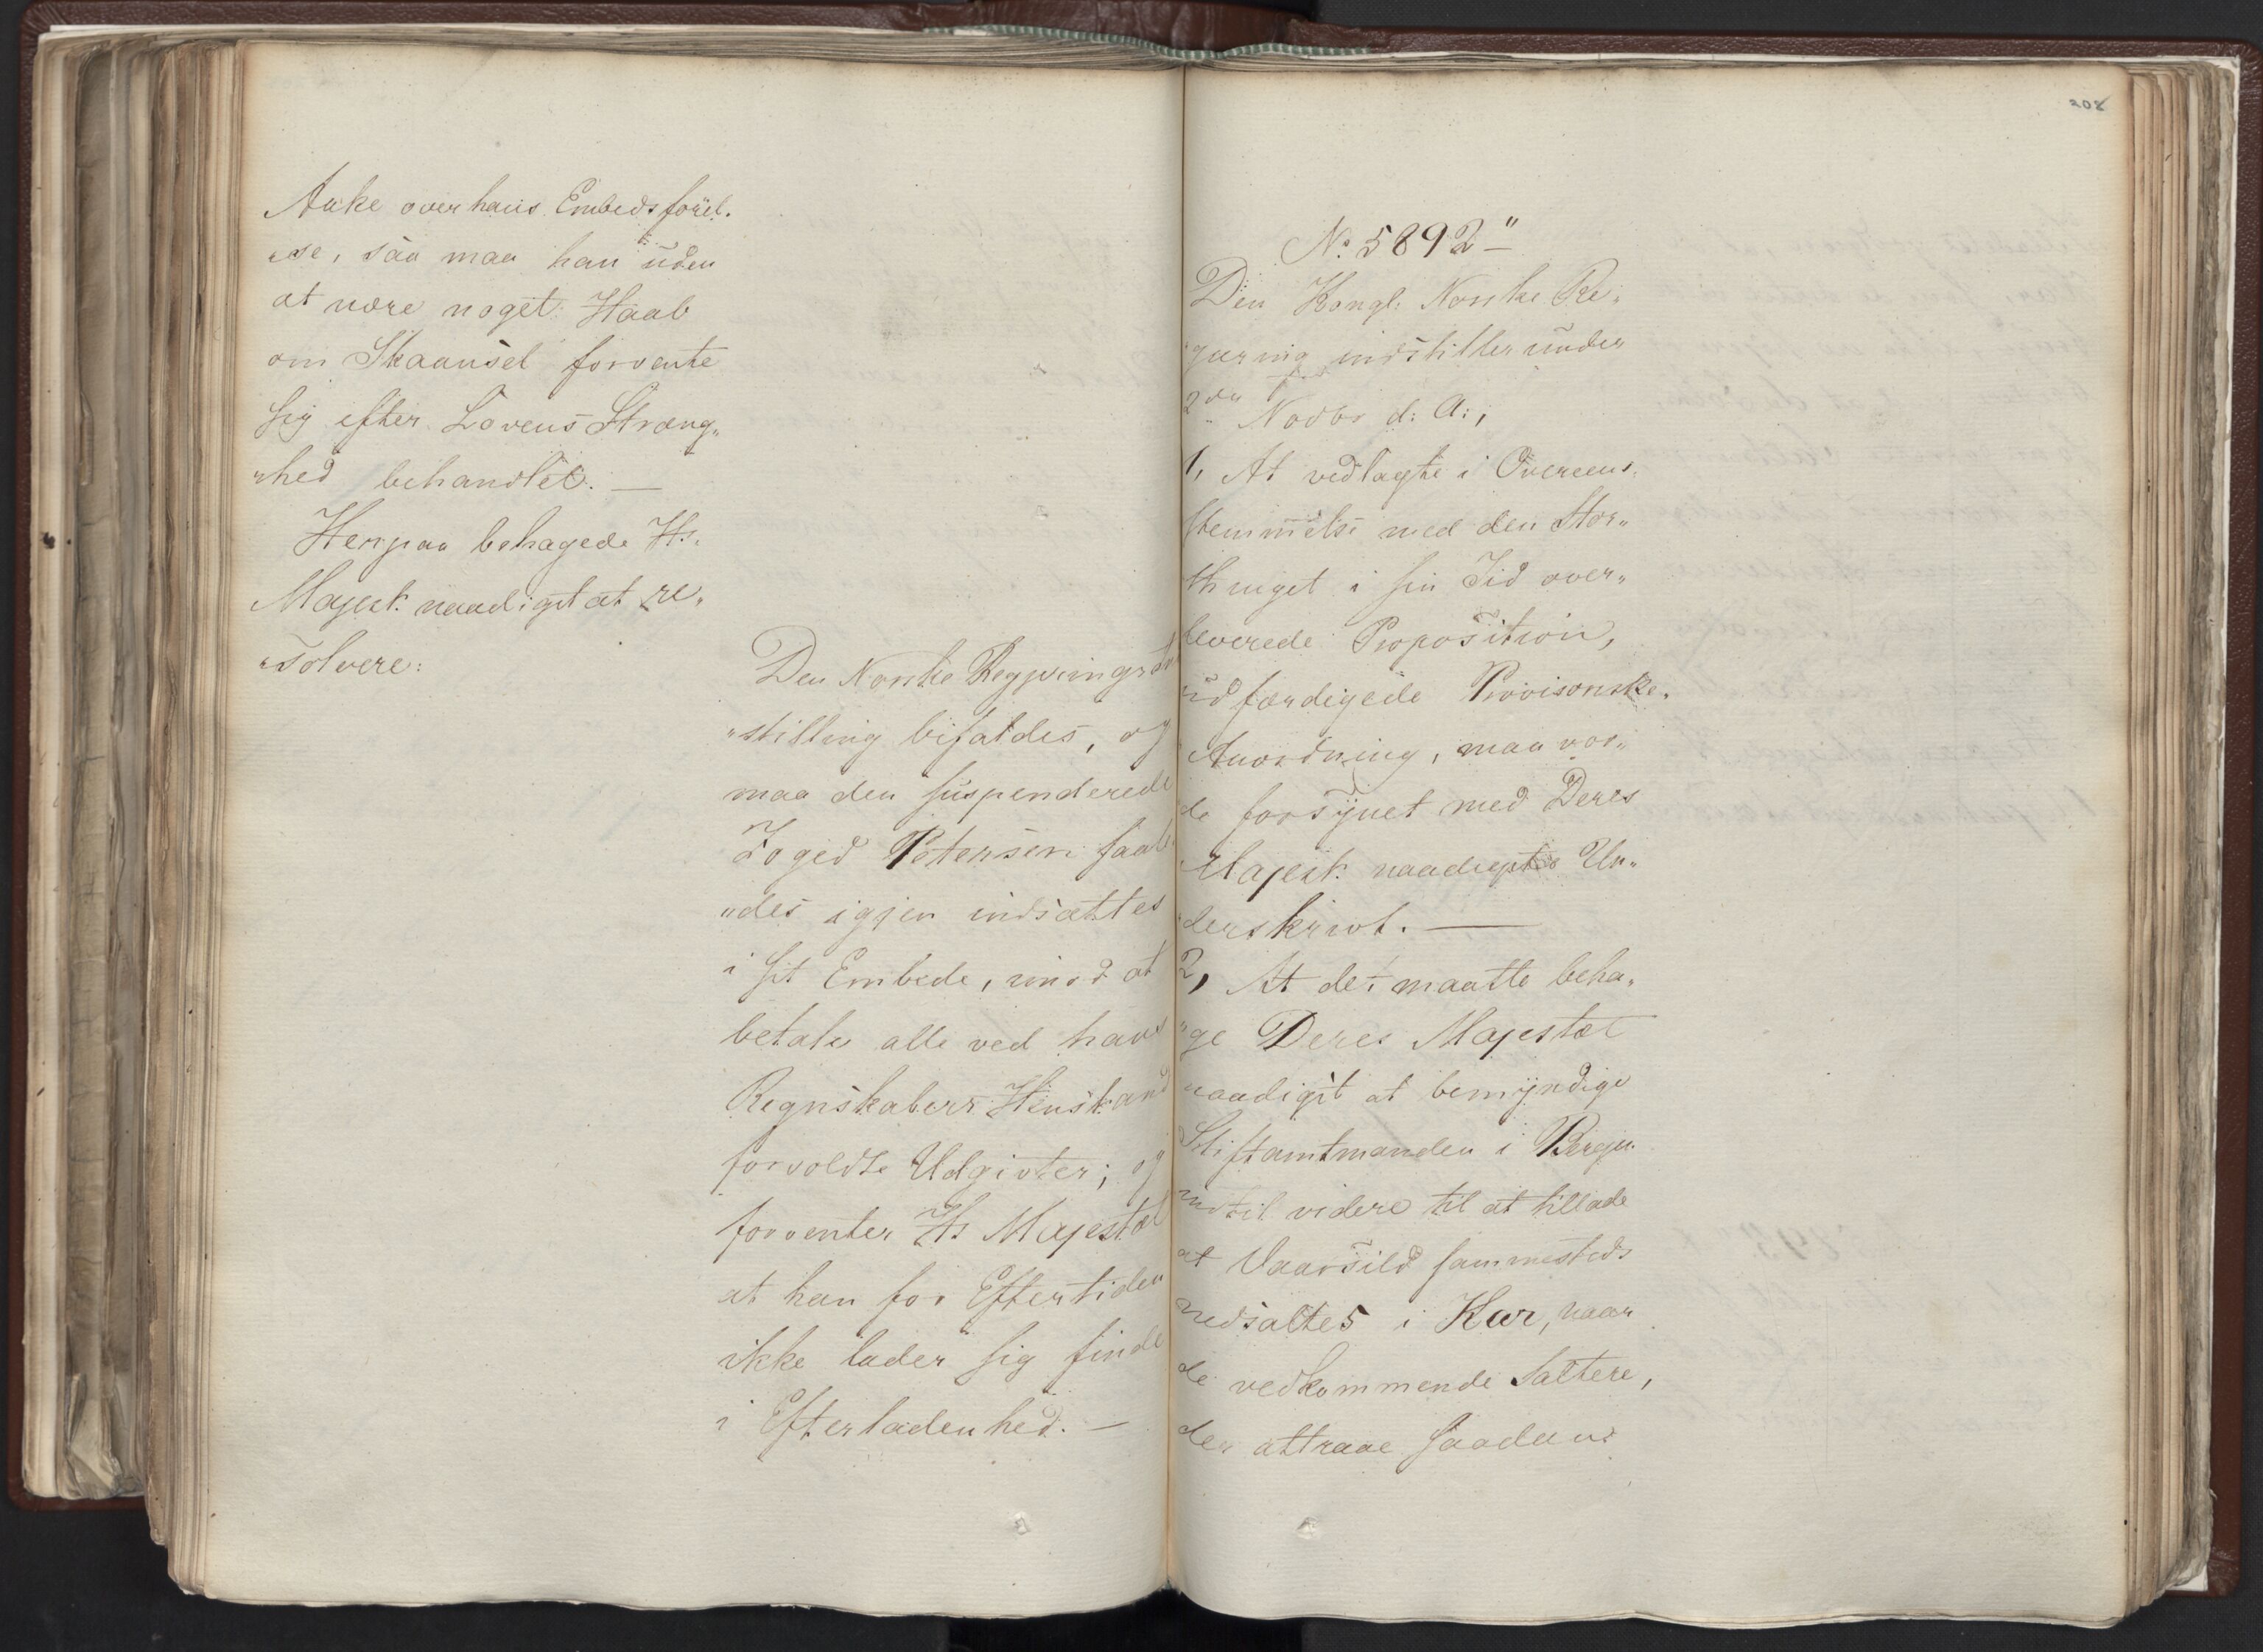 Anke over hans Embedsförel„
„se, saa maa han uden
at være noget Haab
om Skaansel forvente
sig efter Lovens Stræng„
„hed behandlet. —
Herpaa behagede Hs.
Majest. naadigst at re„
„solvere:
Den Norske Regjerings
„stilling bifaldes, og
maa den suspenderede
Foged Petersen saal
„des igjen indsættes
i sit Embede, imod at
betale alle ved hans
Regnskabers Henstand
forvoldte Udgivter; og
forventer Hs Majestæt
at han for Eftertiden
ikke lader sig finde
i Efterladenhed. —
208
No. 5892"
Den Kongl. Norske Re„
gjering indstiller under
2den Novbr d: A:,
1, At vedlagte i Overeens„
stemmelse med den Stor„
thinget i sin Tid over„
leverede Proposition,
udfærdigede Provisoriske
Anordning, maa vor„
de forsynet med Deres
Majest. naadigste Un„
derskrivt. —
2, At det maatte beha„
„ge Deres Majestæt
naadigst at bemyndige
Stiftamtmanden i Bergen
indtil videre til at tillade
at Vaarsild sammesteds
nedsaltes i Kar, naar
de vedkommende Saltere,
der attraae saadant